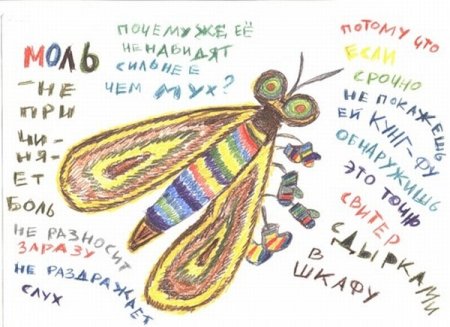 МОЛЬ
-НЕ
ПРИ
ЧИ-
НЯ-
ЕТ
БОЛЬ
НЕ РАЗНОСИТ
ЗАРАЗУ
НЕ РАЗДРАЖАЕТ
СЛУХ
ПОЧЕМУ ЖЕ, ЕЁ
НЕНАВИДЯТ
СИЛЬНЕЕ
ЧЕМ МУХ?
ПОТОМУ ЧТО
ЕСЛИ
СРОЧНО
НЕ ПОКАЖЕШЬ
ЕЙ КУНГ-ФУ
ОБНАРУЖИШЬ
ЭТО ТОЧНО
СВИТЕР
С ДЫРКАМИ
В
ШКАФУ